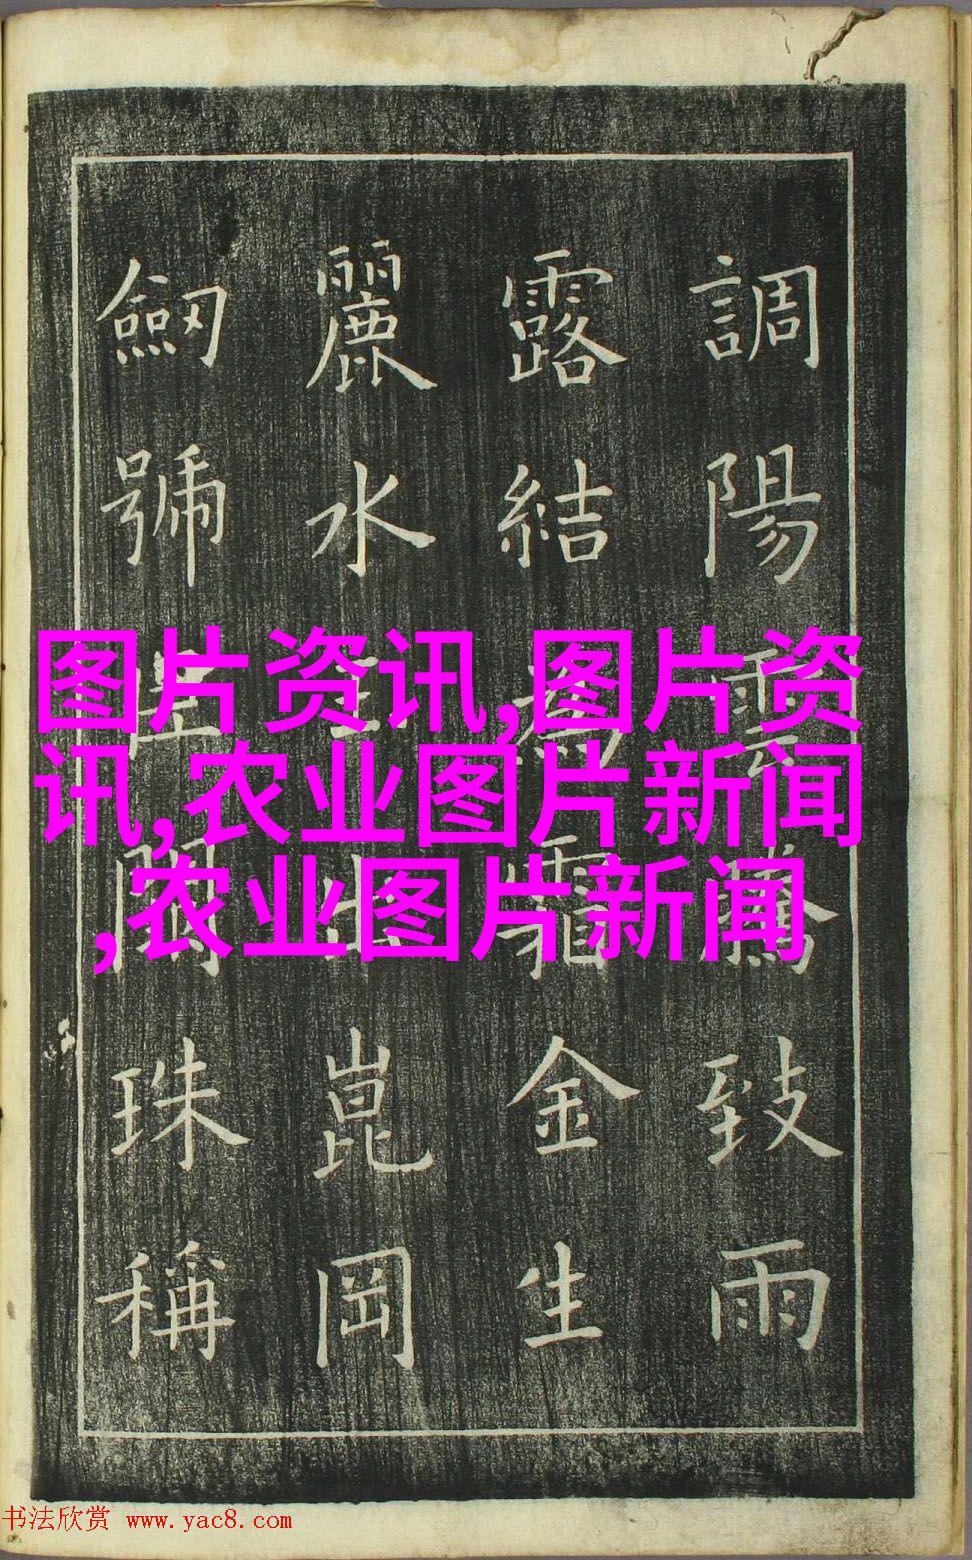 調陽雲騰致雨
露結為霜金生
麗水出崑岡
劒號珠稱
图片资讯,图片资
讯,农业图片新闻
,农业图片新闻
书法欣赏 www.yac8.com